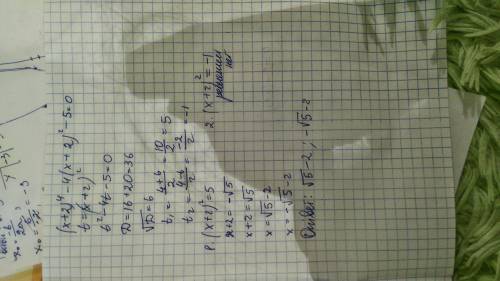 (x+2)⁴-4(x+2)²-5=0
t=(x+2)²
t²-4t-5=0
D=16+20=36
√D=6
t₁=(4+6)/2=10/2=5
t₂=(4-6)/2=-2/2=-1
1. (x+2)²=5
x+2=-√5
x+2=√5
x=√5-2
x=-√5-2
2. (x+2)²=-1
решений
нет
Ответ: √5-2; -√5-2